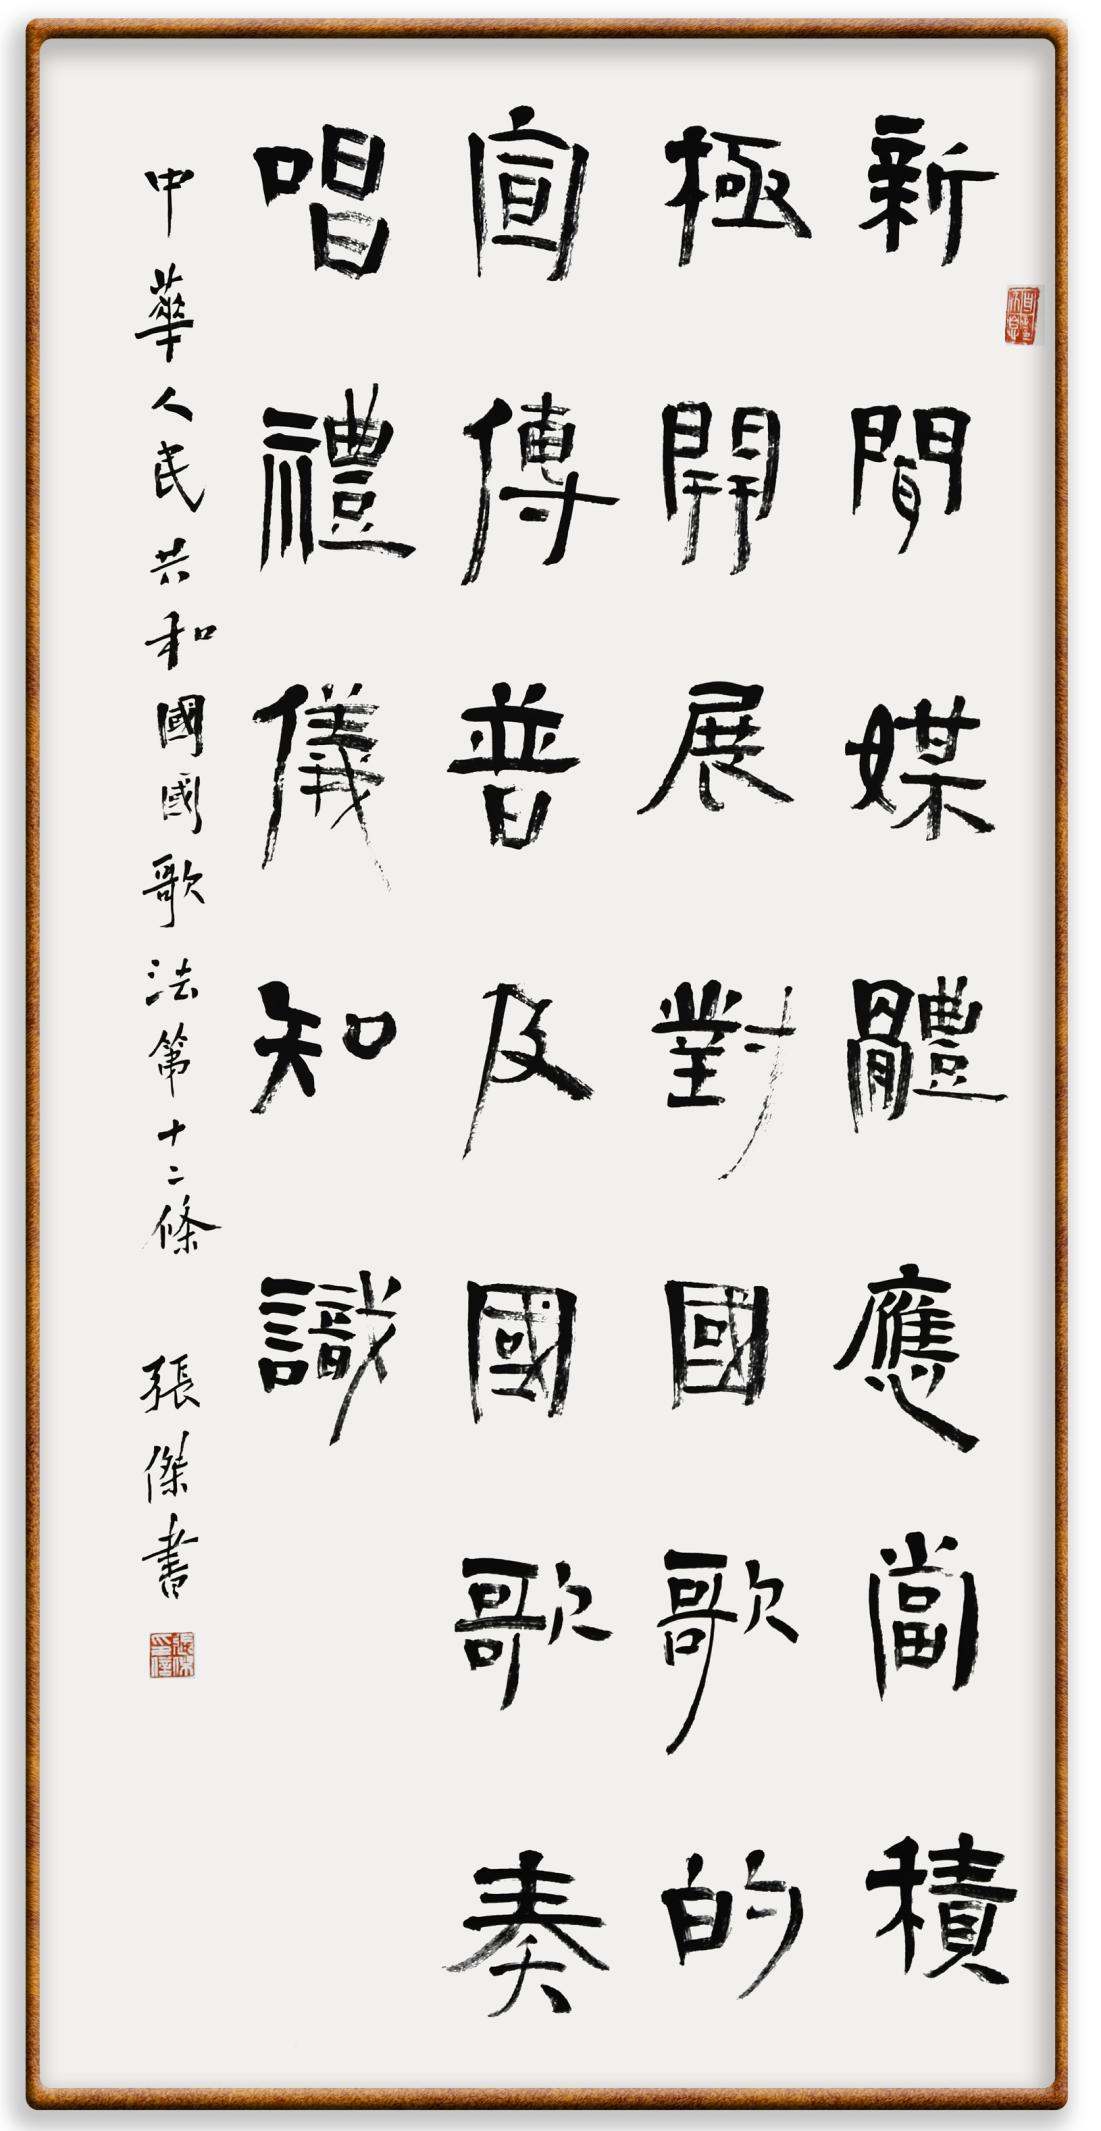 新聞媒體應當積
極開展對國歌的
宣傳普及國歌奏
唱禮儀知識
中華人民共和國國歌法第十二條 張傑書